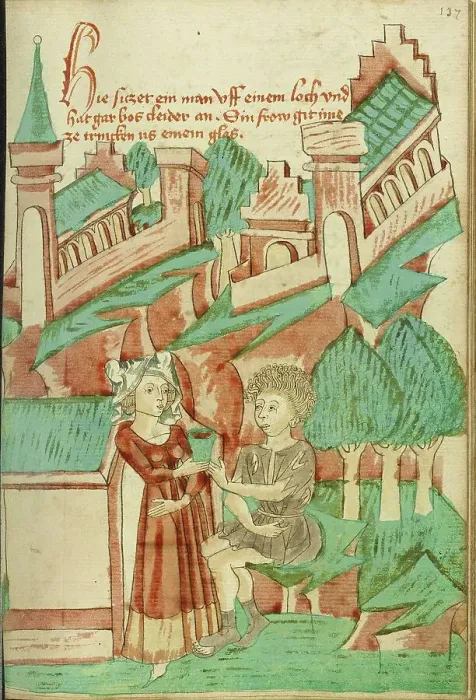 137
Hie sitzet ein man vff einem loch vnd
hat gar bos cleider an. Sin frow git ime
ze trincken us einem glas.